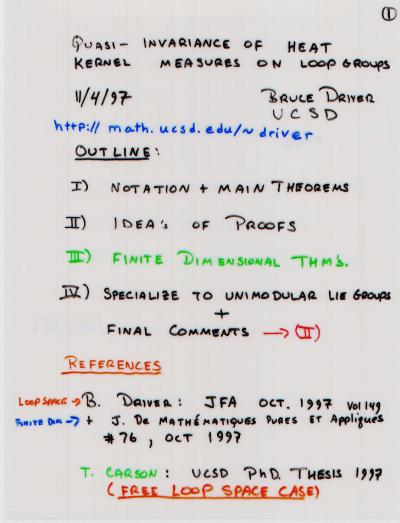 ①
QUASI- INVARIANCE OF HEAT
KERNEL MEASURES ON LOOP GROUPS
11/4/97 BRUCE DRIVER
UCSD
http:// math.ucsd.edu/~driver
OUTLINE:
I) NOTATION + MAIN THEOREMS
II) IDEA's OF PROOFS
III) FINITE DIMENSIONAL THM'S.
IV) SPECIALIZE TO UNIMODULAR LIE GROUPS
+
FINAL COMMENTS → (II)
REFERENCES
LOOP SPACE → B. DRIVER: JFA OCT. 1997 Vol 149
FINITE DIM → + J. De MATHÉMATIQUES PURES ET Appliqués
#76, OCT 1997
T. CARSON: UCSD PhD. THESIS 1997
(FREE LOOP SPACE CASE)